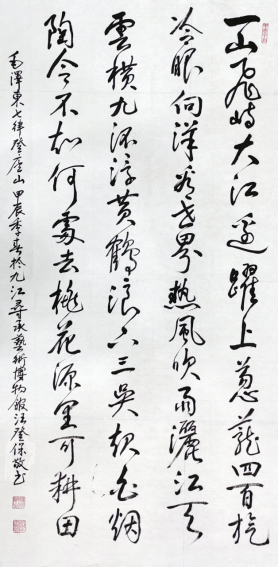 一山飛峙大江邊躍上蔥蘢四百旋
冷眼向洋看世界熱風吹雨灑江天
雲橫九派浮黃鶴浪下三吳起白烟
陶令不知何處去桃花源里可耕田
毛澤東七律登廬山 甲辰季春於九江尋承藝術博物館 登保敬書